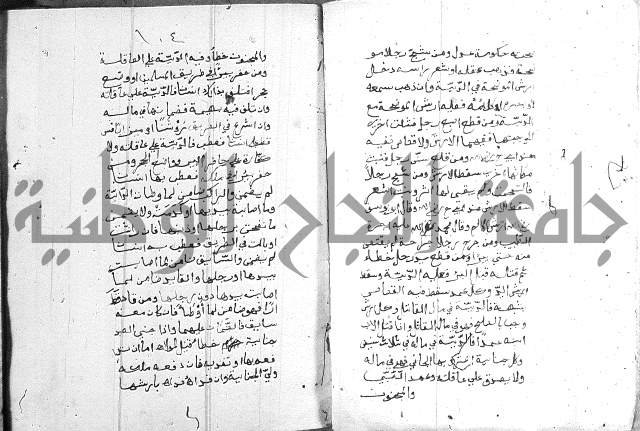 تحته حكومة عدل ومن شج رجلا مو
ضحة فذهب عقله او شعر راسه دخل
ارش الموضحة في الدية وان ذهب سمعه
او بصره او كلامه فعليه ارش الموضحة مع
الدية ومن قطع اصبع رجل فشلت اخرى
ففيهما الارش ولا قصاص فيه
ومن قلع سن رجل فنبت
مكانها اخرى سقط الارش ومن شج رجلا
فالتحمت ولم يبق لها اثر ونبت الشعر
سقط الارش عند ابي حنيفة وقال ابو يوسف
ارش الالم وقال محمد عليه اجرة
الطبيب ومن جرح رجلا جراحة لم يقتص
منه حتى يبرأ ومن قطع يد رجل خطأ
ثم قتله قبل البرء فعليه الدية وسقط
ارش اليد وكل عمد سقط فيه القصاص
بشبهة فالدية في مال القاتل وكل ارش
وجب بالصلح فهو في مال القاتل واذا قتل الاب
ابنه عمدا فالدية في ماله في ثلاث سنين
وكل جناية اعترف بها الجاني فهو في ماله
ولا يصدق على عاقلته وعمد الصبي
والمجنون
١٠٤
والمجنون خطأ وفيه الدية على العاقلة
ومن حفر بيرا في طريق المسلمين او وضع
حجرا فتلف بذلك انسان فالدية على عاقلته
وان تلف فيه بهيمة فضمانها في ماله
وان اشرع في الطريق روشنا او ميزابا فسقط
على انسان فعطب فالدية على عاقلته ولا
كفارة على حافر البير وواضع الحجر ومن
حفر بيرا في ملكه فعطب بها انسان
لم يضمن والراكب ضامن لما وطئت الدابة
وما اصابته بيدها او كدمت ولا يضمن
ما نفحت برجلها او ذنبها فان راثت
او بالت في الطريق فعطب به انسان
لم يضمن والسايق ضامن لما اصابت
بيدها او رجلها والقايد ضامن لما
اصابت بيدها دون رجلها ومن قاد قطارا
فهو ضامن لما اوطأ فان كان معه
سايق فالضمان عليهما واذا جنى العبد
جناية خطأ قيل لمولاه اما ان تد
فعه بها او تفديه فان دفعه ملكه
ولي الجناية وان فداه فداه بارشها
جامعة النجاح الوطنية